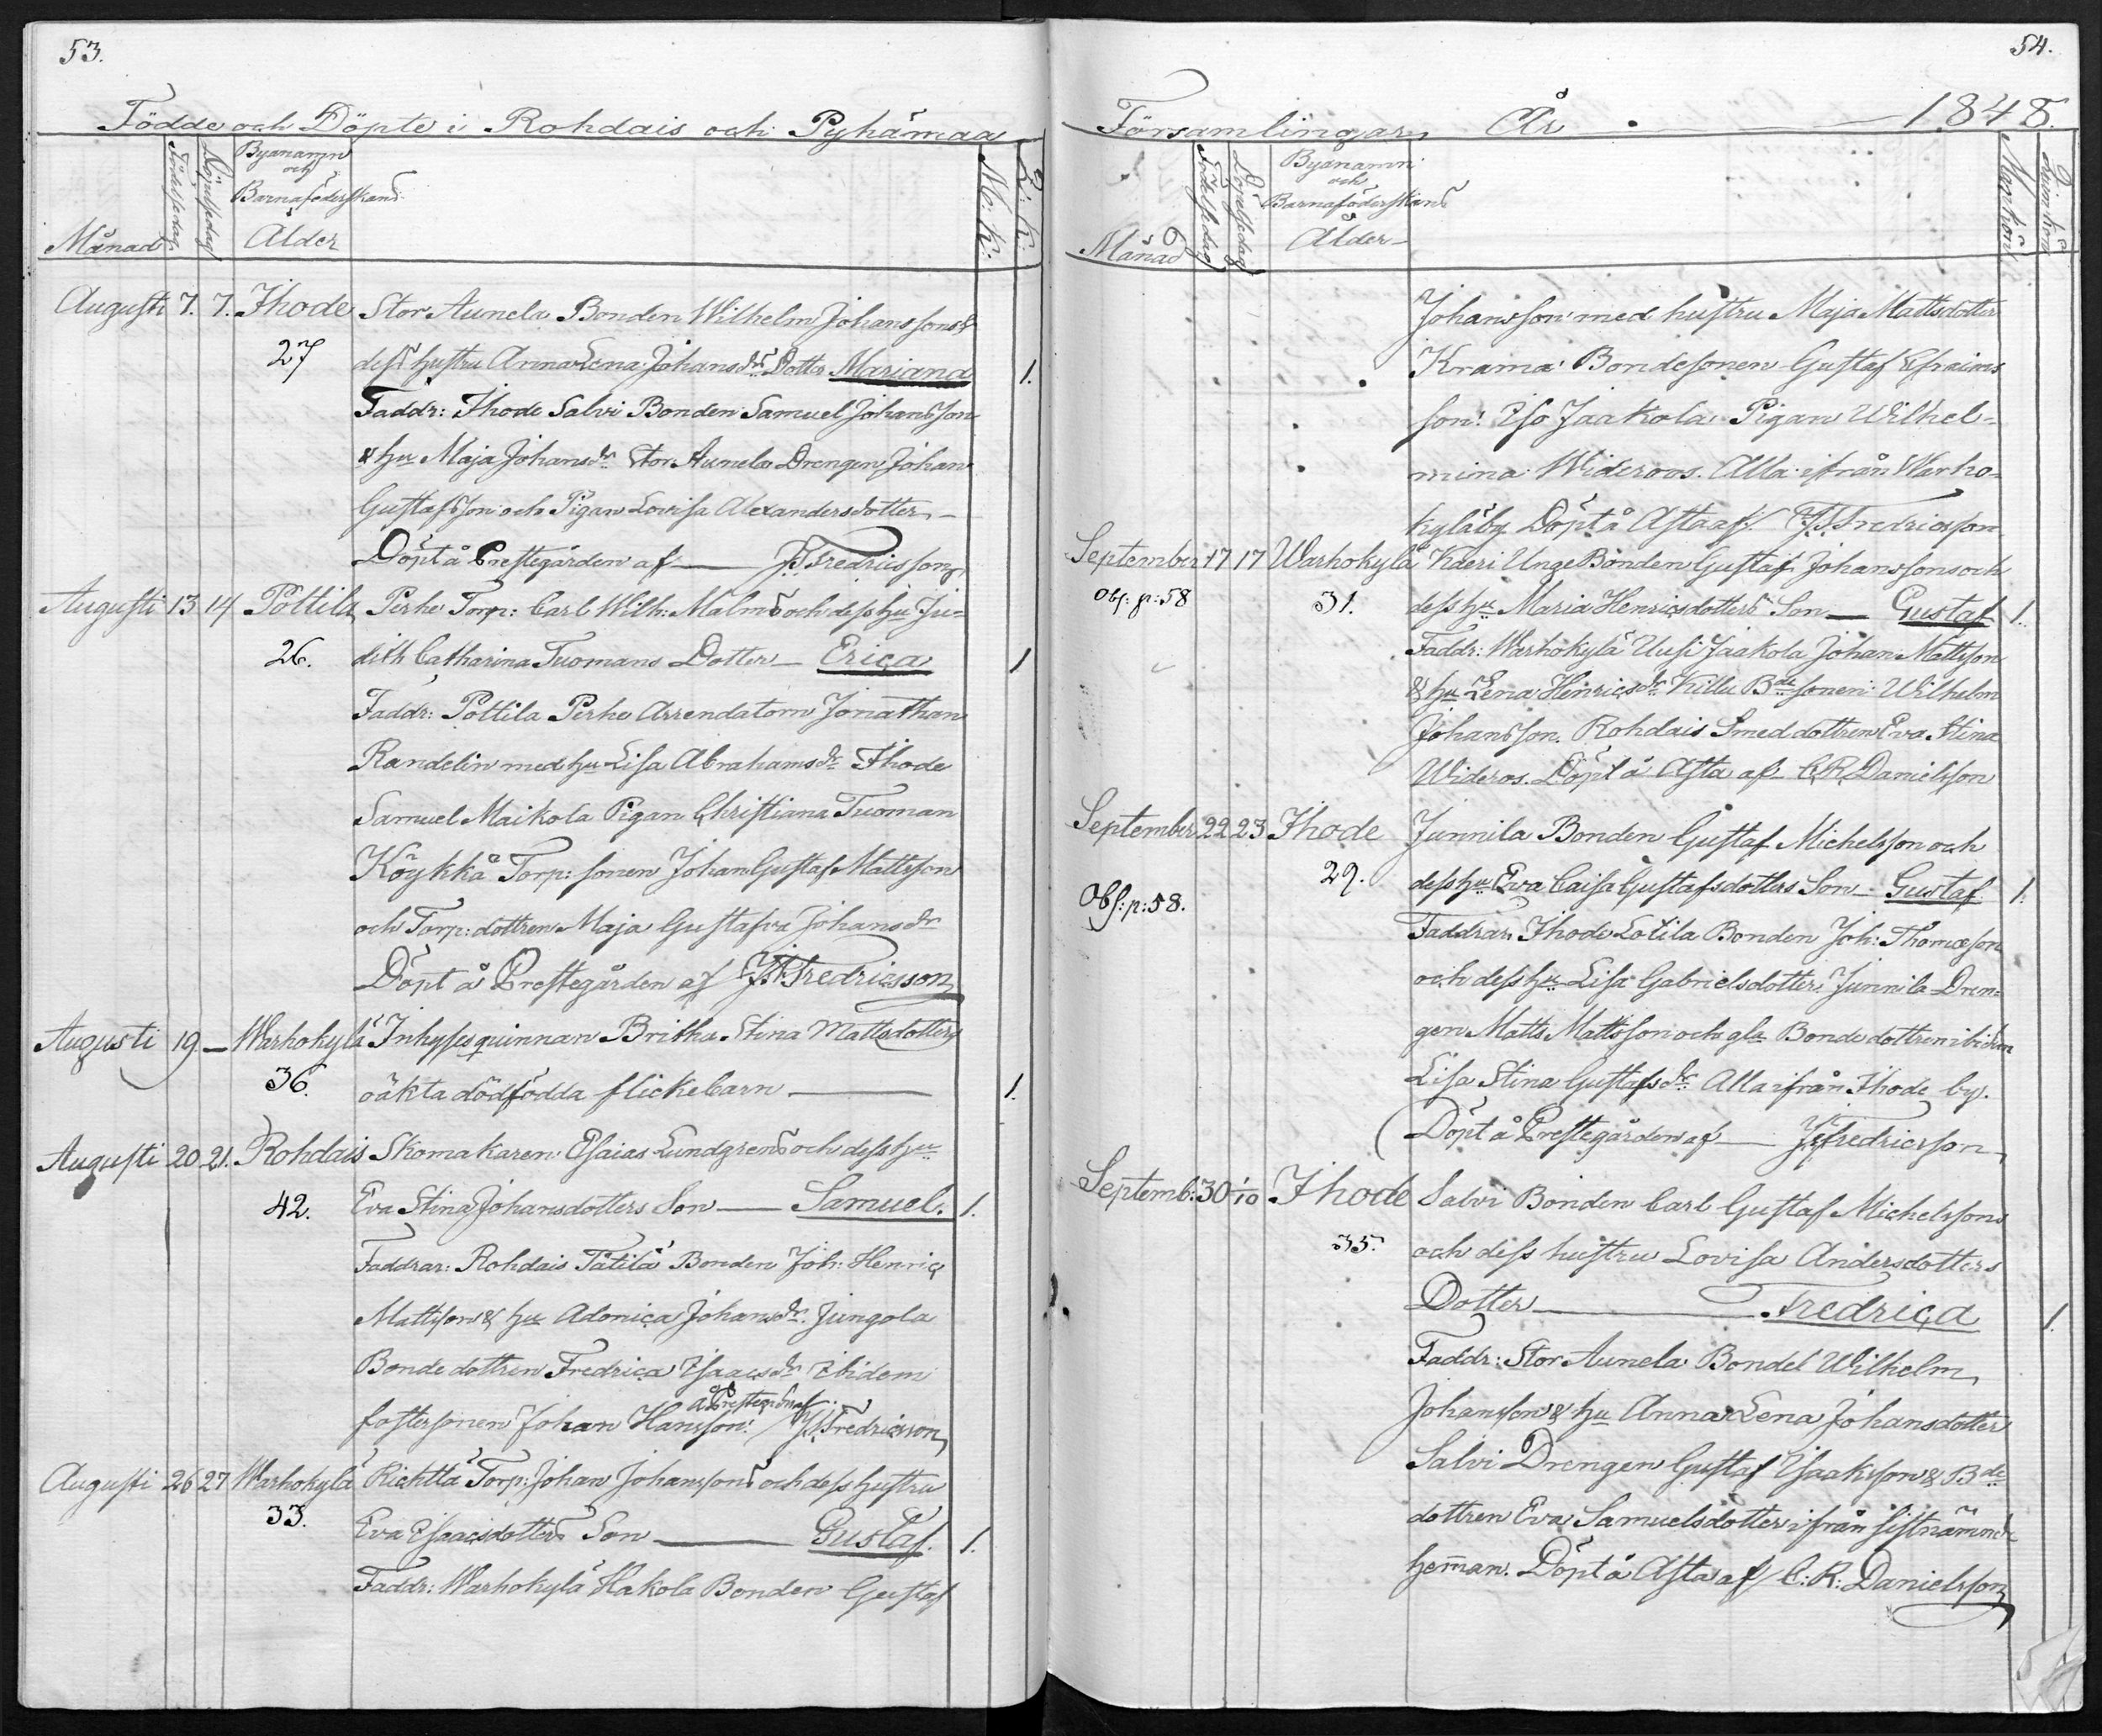 53.
Födde och Döpte i Rohdais och Pyhämaa
Månad
Födelsedag
Döpelsedag
Byanamn
och
Barnaföderskans
Ålder
M: K:
Q: K:
Augusti 7. 7. Ihode Stor Aunela Bonden Wilhelm Johanssons &
27 dess hustru Anna Lena Johansdrs Dotter Mariana 1.
Faddr: Ihode Salvi Bonden Samuel Johansson
& hu Maja Johansdr Stor Aunela Drengen Johan
Gustafsson och Pigan Lovisa Alexandersdotter
Döpt å Prestegården af J. Fredricsson
Augusti 13 14 Pottila Perhe Torp: Carl Wilh: Malms och dess hu Ju-
26. dith Catharina Tuomans Dotter Erica 1
Faddr: Pottila Perhe Arrendatorn Jonathan
Randelin med hu Lisa Abrahamsdr Ihode
Samuel Maikola Pigan Christiana Tuoman
Köykkä Torp: sonen Johan Gustaf Mattsson
och Torp: dottren Maja Gustafva Johansdr
Döpt å Prestegården af J. Fredricsson
Augusti 19. — Warhokylä Inhyses quinnan Britha Stina Mattsdotters
36. oäkta dödfödda flickebarn 1.
Augusti 20 21. Rohdais Skomakaren Esaias Lundgrens och dess hu
42. Eva Stina Johansdotters Son Samuel. 1.
Faddrar: Rohdais Tätilä Bonden Joh: Henric
Mattsson & hu Adonica Johansdr. Jungola
Bonde dottren Fredrica Isaacsdr Ibidem
å Prestegården af
fostersonen Johan Hansson. J. Fredricsson
Augusti 26 27 Warhokylä Richtla Torp: Johan Johanssons och dess hustru
33. Eva Isaacsdotters Son Gustaf. 1.
Faddr: Warhokylä Hakola Bonden Gustaf
54.
Församlingar, År 1848.
Månad
Födelsedag
Döpelsedag
Byanamn
och
Barnaföderskans
Ålder
Mankön
Qvinnkön
Johansson med hustru Maja Mattsdotter
Krama Bondesonen Gustaf Efraims
son. Iso Jaakola Pigan Wilhel-
mina Wideroos. Alla ifrån Warho-
kyläby Döpt å Asta af J. Fredricsson
September 17 17 Warhokylä Kaeri Unge Bonden Gustaf Johanssons och
Obs: p: 58 31. dess hu Maria Henricsdotters Son Gustaf 1.
Faddr: Warhokylä Uusi Jaakola Johan Mattsson
& hu Lena Henricsdr Killu Bde sonen Wilhelm
Johansson. Rohdais Smed dottren Eva Stina
Wideros. Döpt å Asta af C R Danielsson
September 22 23 Ihode Junnila Bonden Gustaf Michelsson och
29. dess hu Eva Caisa Gustafsdotters Son Gustaf. 1.
Obs: p: 58.
Faddrar. Ihode Lotila Bonden Joh: Thomæson
och dess hu Lisa Gabrielsdotter. Junnila Dren-
gen Matts Mattsson och gla Bonde dottren ibidem
Lisa Stina Gustafsdr. Alla ifrån Ihode by.
Döpt å Prestegården af J. Fredricsson
Septemb: 30 1/10 Ihode Salvi Bonden Carl Gustaf Michelssons
35. och dess hustru Lovisa Andersdotters
Dotter Fredrica 1.
Faddr: Stor Aunela Bondel Wilhelm
Johansson & hu Anna Lena Johansdotter
Salvi Drengen Gustaf Isaksson & Bde
dottren Eva Samuelsdotter ifrån sistnämnde
heman. Döpt å Asta af C: R: Danielsson